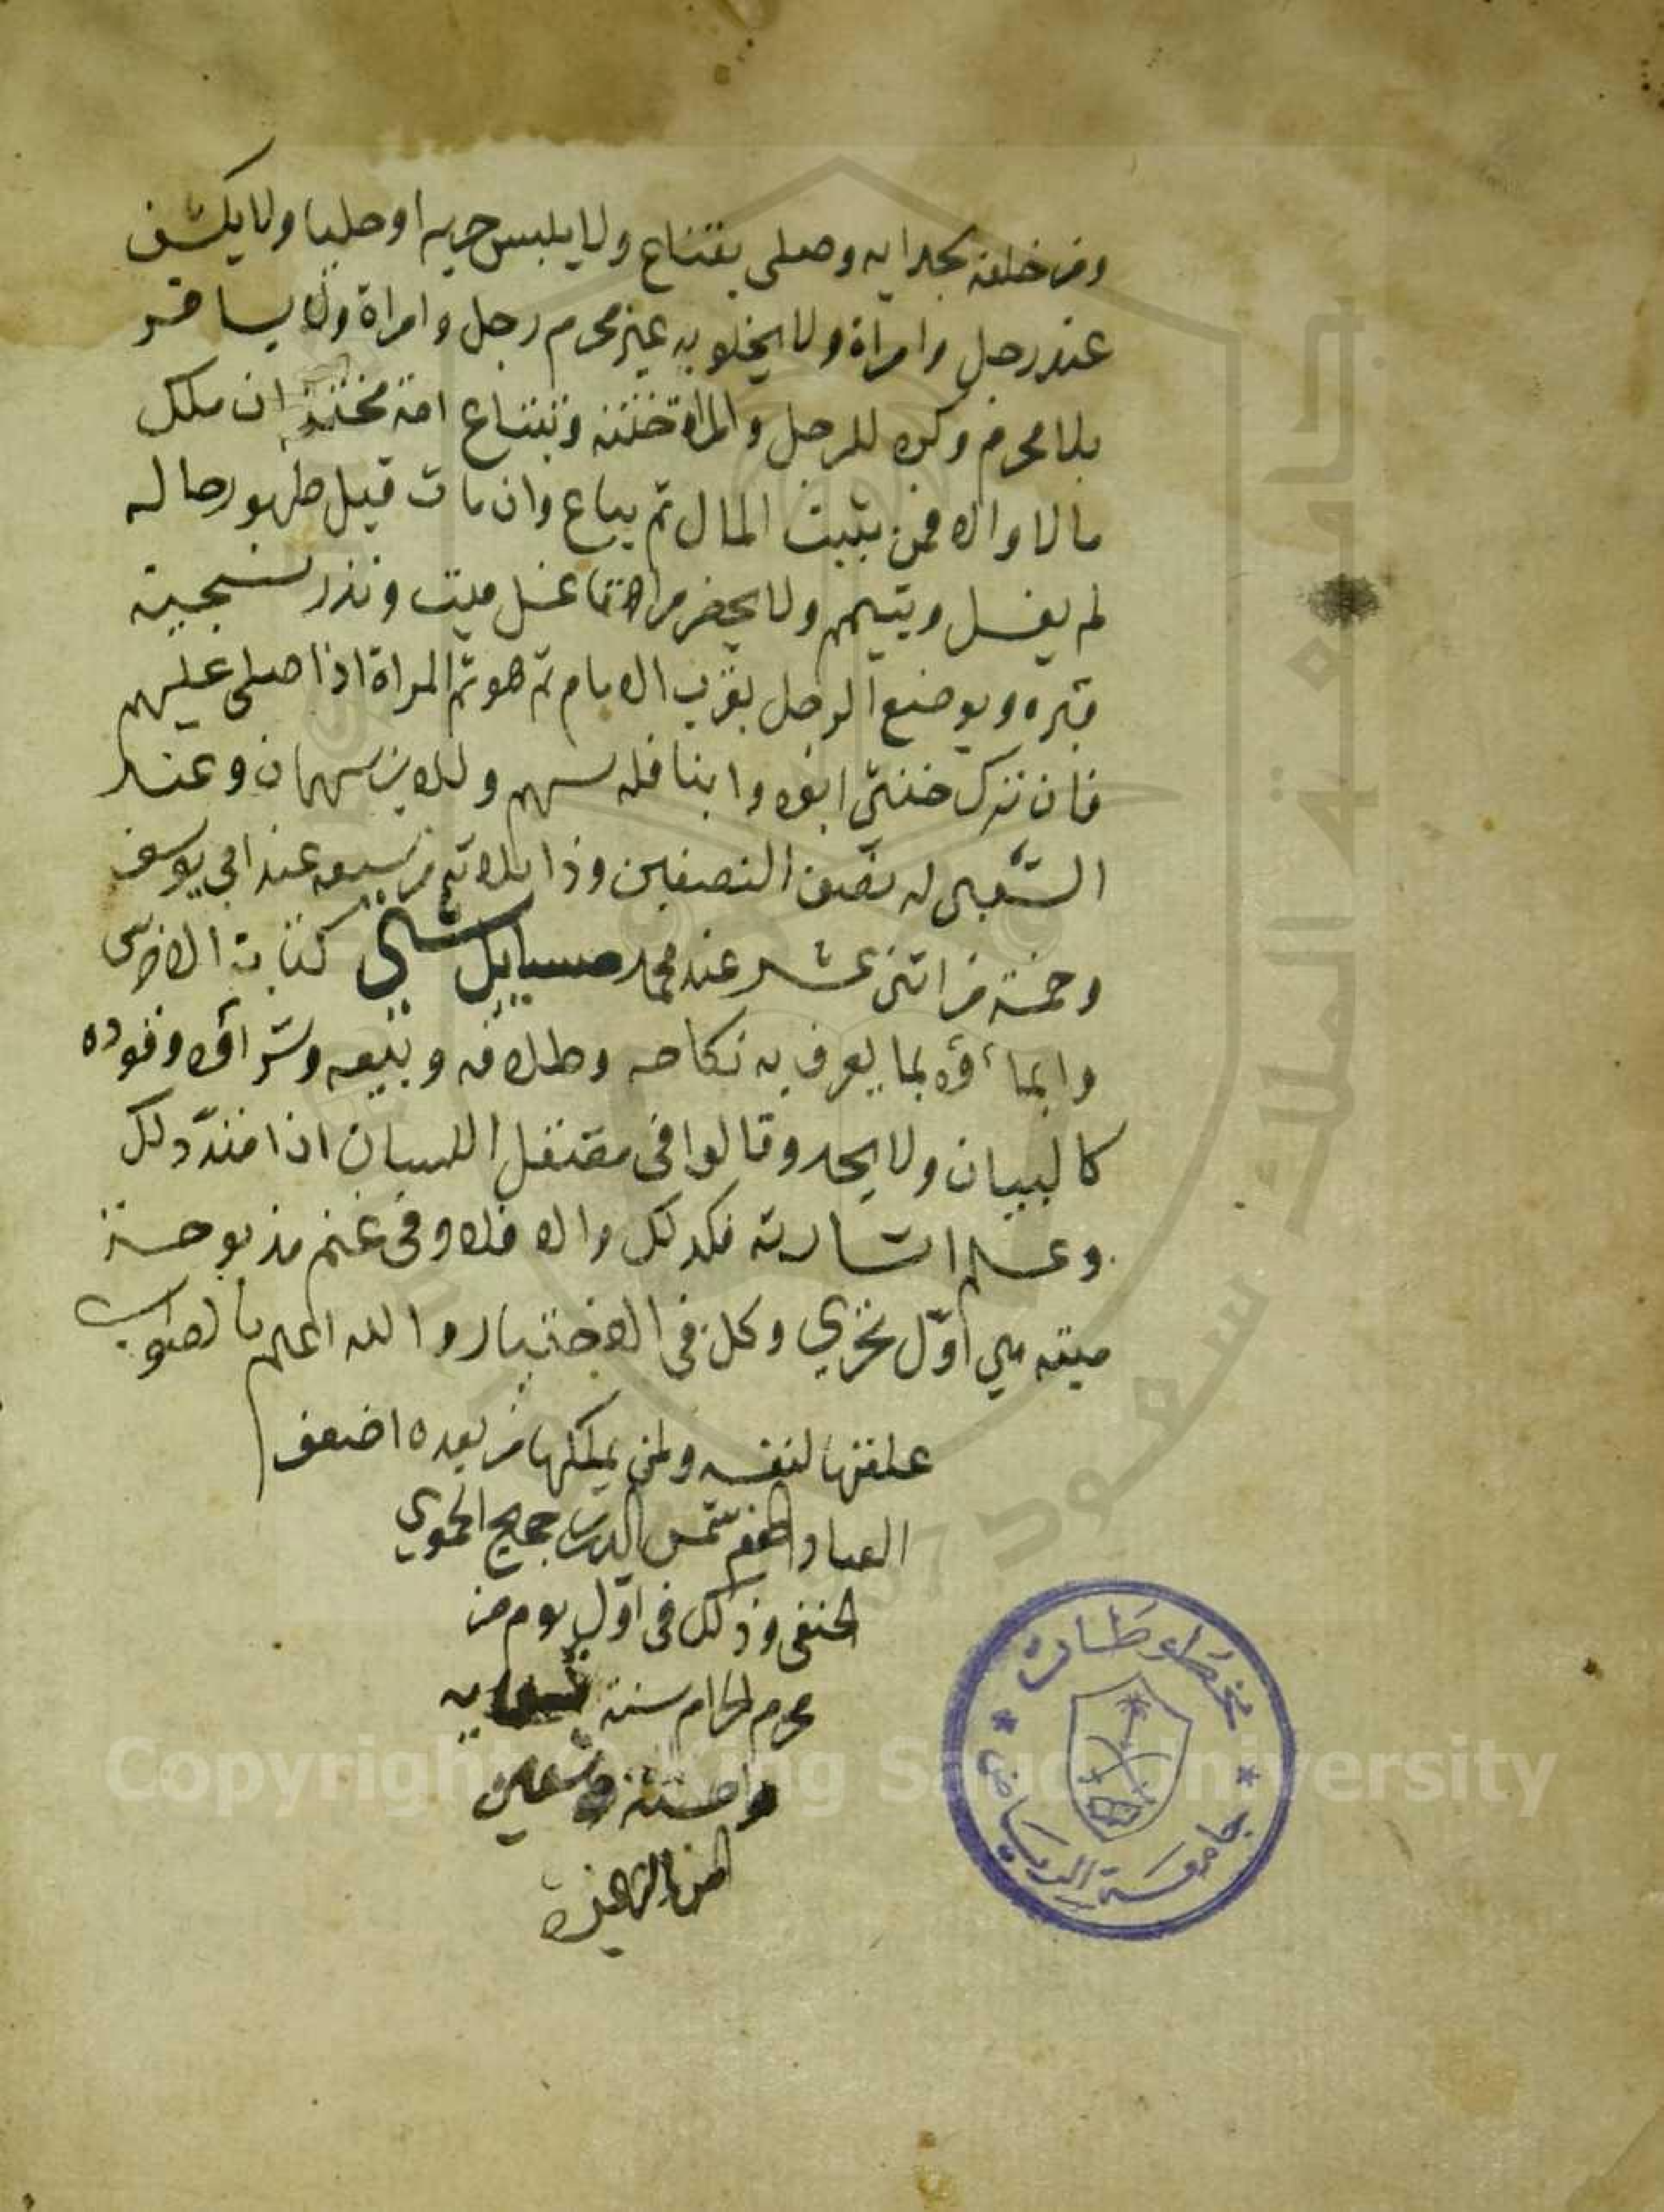 ومن خلفه بحدايه وصلى بقناع ولا يلبس حرير اوحليا ولا يكشف
عند رجل وامراة ولا يخلو به غير محرم رجل وامراة ولا يسافر
بلا محرم وكره للرجل والمراة ختنه وتبتاع امة تختنه ان ملك
مالا والا فمن بيت المال ثم يباع وان مات قبل ظهور حاله
لم يغسل ويتيمم ولا يحضر مراهقا غسل ميت وندر تسجية
قبره ويوضع الرجل بقرب الامام ثم هو ثم المراة اذا صلى عليهم
فان ترك خنثى ابوه وابنا فله سهم وللابن سهمان وعند
الشعبي له نصف النصفين وذا ثلاثة من سبعة عند ابي يوسف
وخمسة من اثنى عشر عند محمد مسايل شتى كتابة الاخرس
وايماؤه بما يعرف به نكاحه وطلاقه وبيعه وشراؤه وقوده
كالبيان ولا يحد وقالوا فى معتقل اللسان اذا امتد ذلك
وعلم اشارته فكذلك والا فلا وفى غنم مذبوحة
ميته هي اقل تحري وكل فى الاختيار والله اعلم بالصواب
علقها لنفسه ولمن يملكها من بعده اضعف
العباد شمس الدين الحموي
الحنفى وذلك فى اول يوم من
محرم الحرام سنة
وتسعين
من الهجرة
مخطوطات
جامعة الرياض
جامعة الملك سعود
1957
Copyright © King Saud University